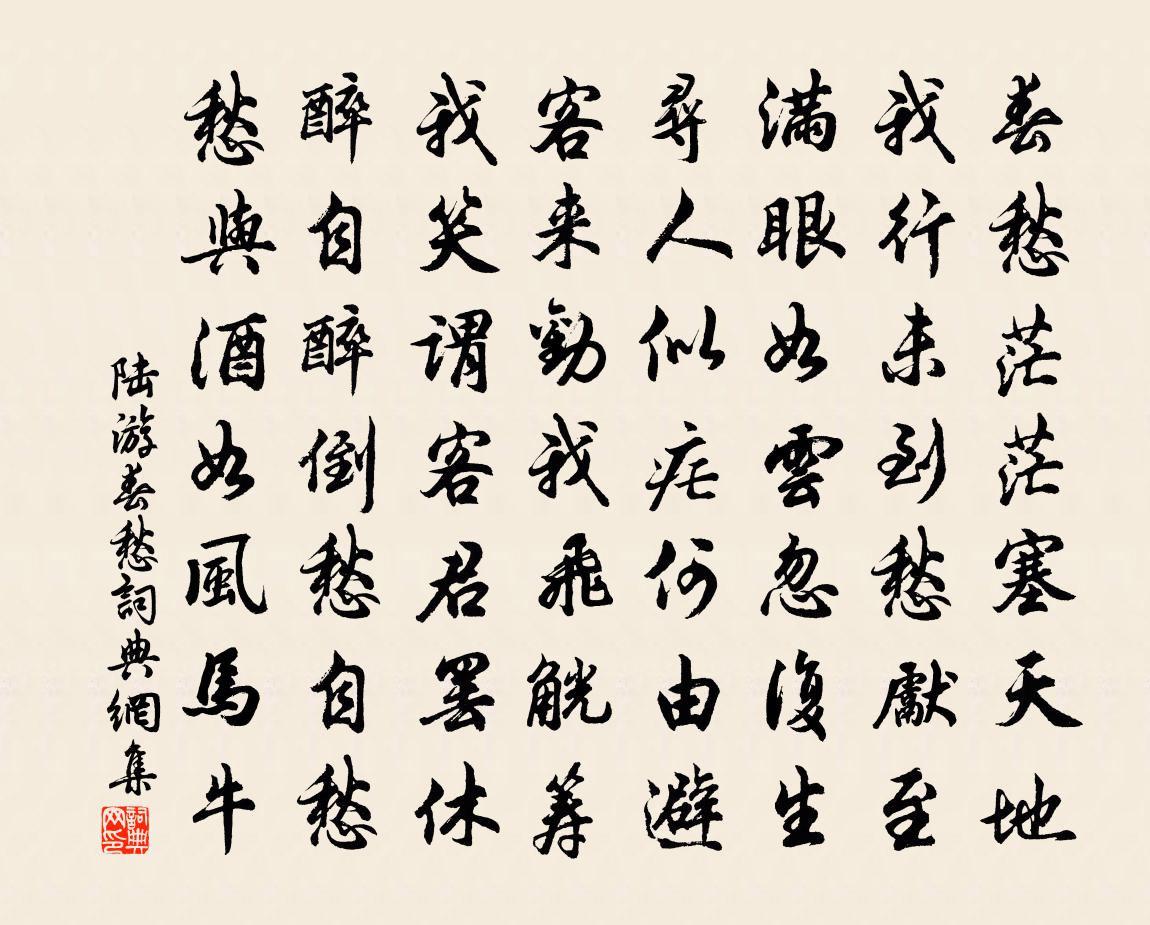 春愁茫茫塞天地
我行未到愁獻至
滿眼如雲忽復生
尋人似疟何由避
客来勸我飛觥筹
我笑謂客君罢休
醉自醉倒愁自愁
愁與酒如風馬牛
陆游春愁詞典網集
詞典网印